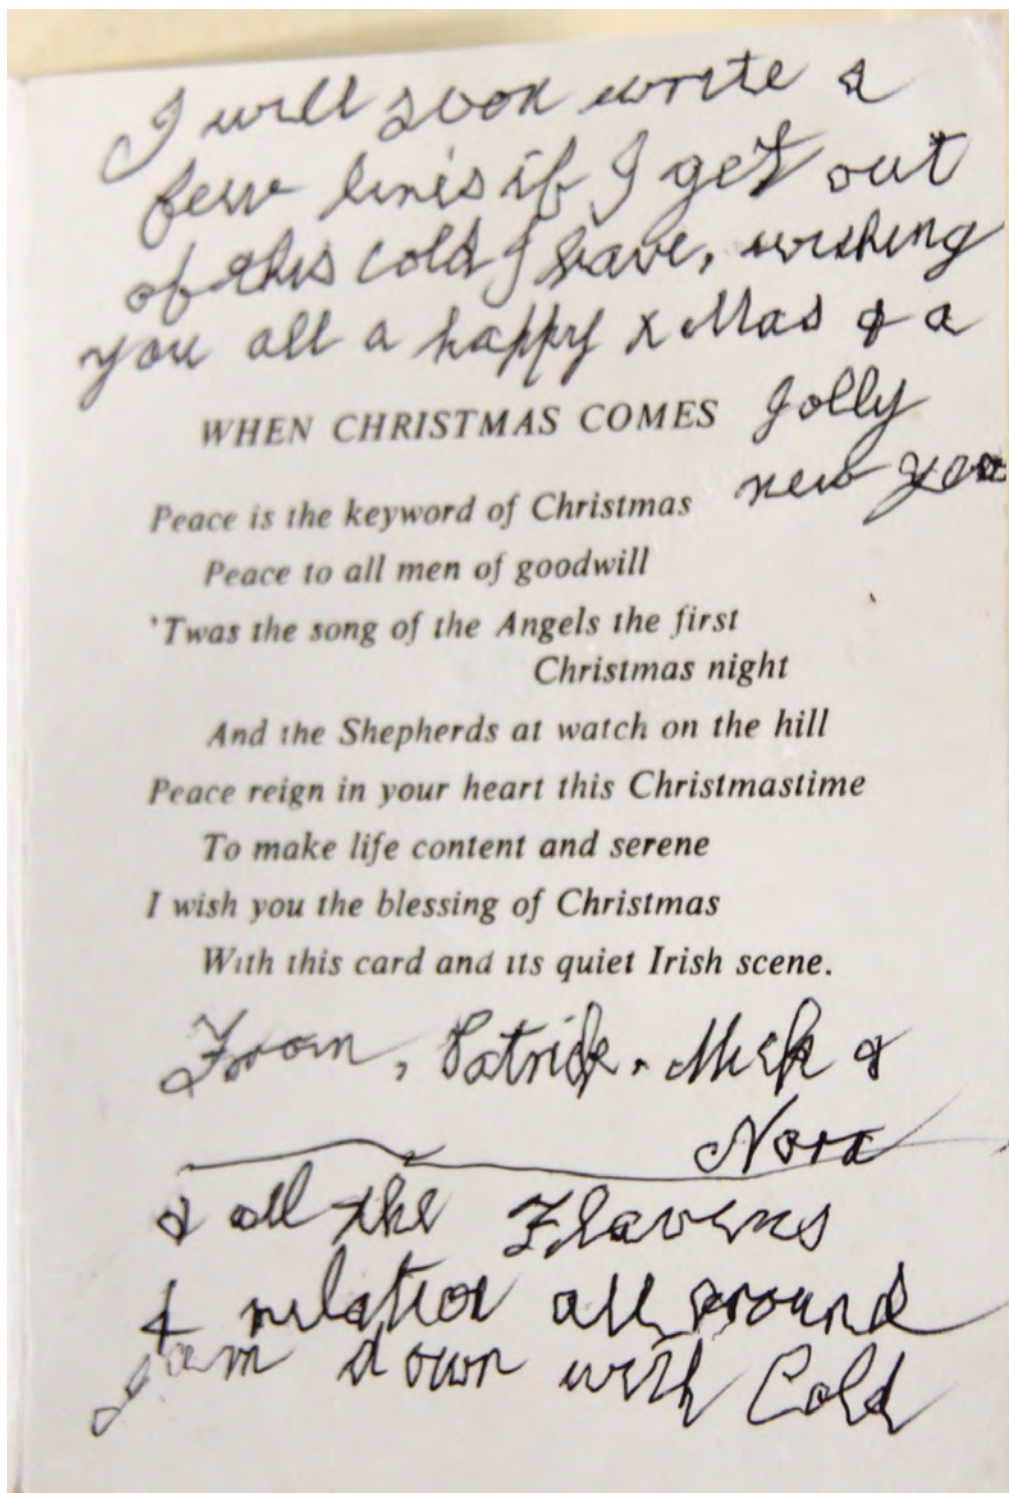 I will soon write a
few lines if I get out
of this cold I have, wishing
you all a happy x Mas & a
Jolly
new year
WHEN CHRISTMAS COMES
Peace is the keyword of Christmas
Peace to all men of goodwill
'Twas the song of the Angels the first
Christmas night
And the Shepherds at watch on the hill
Peace reign in your heart this Christmastime
To make life content and serene
I wish you the blessing of Christmas
With this card and its quiet Irish scene.
From, Patrick. Mick &
Nora
& all the
& relation all around
I am down with Cold